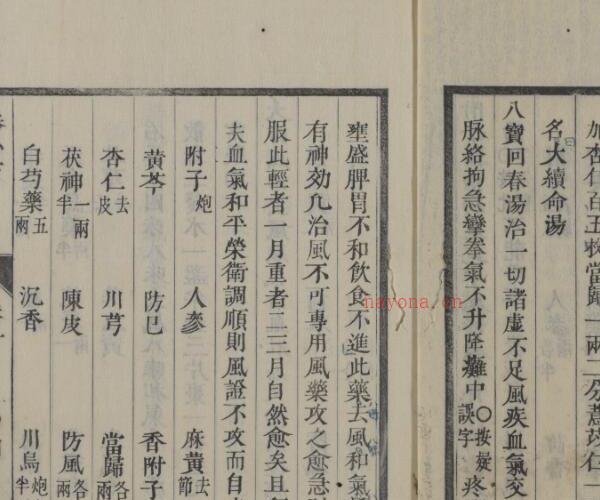 加杏仁百五枚當歸一兩二分薏苡仁一
名大續命湯
八寶回春湯治一切諸虛不足風疾血氣交
脉絡拘急攣拳氣不升降難中〇按疑誤字疼
壅盛脾胃不和飲食不進此藥去風和氣
有神効凡治風不可專用風藥攻之愈急
服此輕者一月重者二三月自然愈矣且
夫血氣和平榮衛調順則風證不攻而自
附子炮 人參 麻黃去節
黃芩 防巳 香附子
杏仁去皮 川芎 當歸各
茯神一兩半 陳皮 防風各兩
白芍藥五兩 沉香 川烏炮
nayona.cn